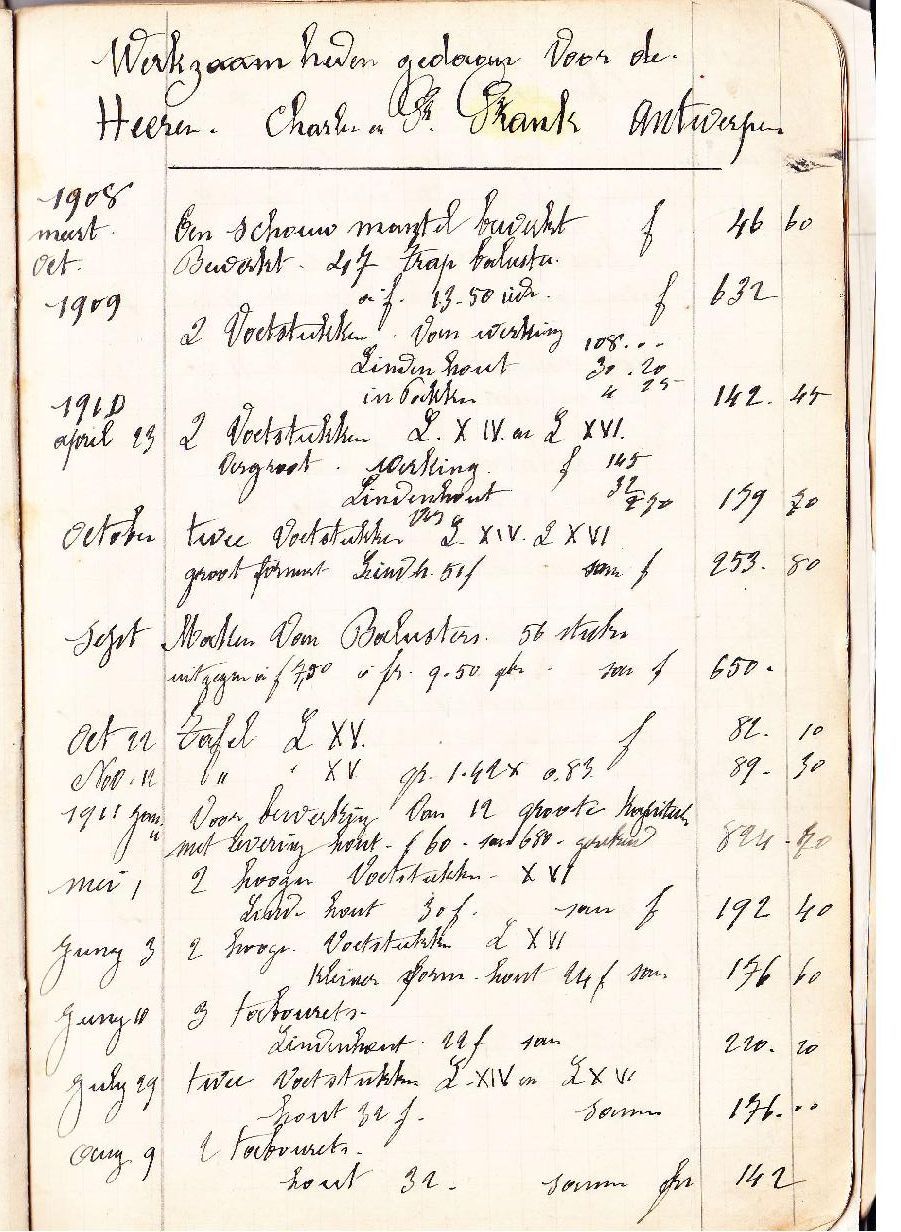 Werkzaamheden gedaan voor de
Heeren. Charles en Fr. Frank Antwerpen
1908
maart. Een schouw mantel bewerkt f 46 60
Oct. Bewerkt. 47 trap baluster.
à f. 13-50 f 632
1909
2 Voetstukken. Van werking 108...
Lindenhout 30.20
inpakken 4 25 142. 45
1910
april 23 2 Voetstukken L. XIV. en L XVI.
vergroot. werking. f 145
Lindenhout 32
2 70 179 70
October twee Voetstukken L XIV. L XVI
groot formaat Lindh. 51 f sam f 253. 80
Sept Maken van Balusters. 56 stuks
uitzagen à f 7,50 à fr. 9.50 sam f 650.
Oct 22 Tafel L XV. f 82. 10
Nov. 12 " " XV gr. 1.42 x 0.83 89. 30
1911 Jan. Voor bewerking van 12 groote kapiteels
" met levering hout - f 60 - sam 680 - gerekend 824 - 70
mei 1 2 hooge Voetstukken - XVI
Linde hout 30 f. sam f 192 40
Juny 3 2 hooge. Voetstukken L XVI
kleiner form - hout 24 f sam 176 60
Juny 10 3 tabourets-
Lindenhout. 22 f sam 220. 20
July 29 twee Voetstukken L-XIV en L XVI
hout 32 f. samen 176. ..
Aug 9 2 tabourets-
hout 32. samen fr 142